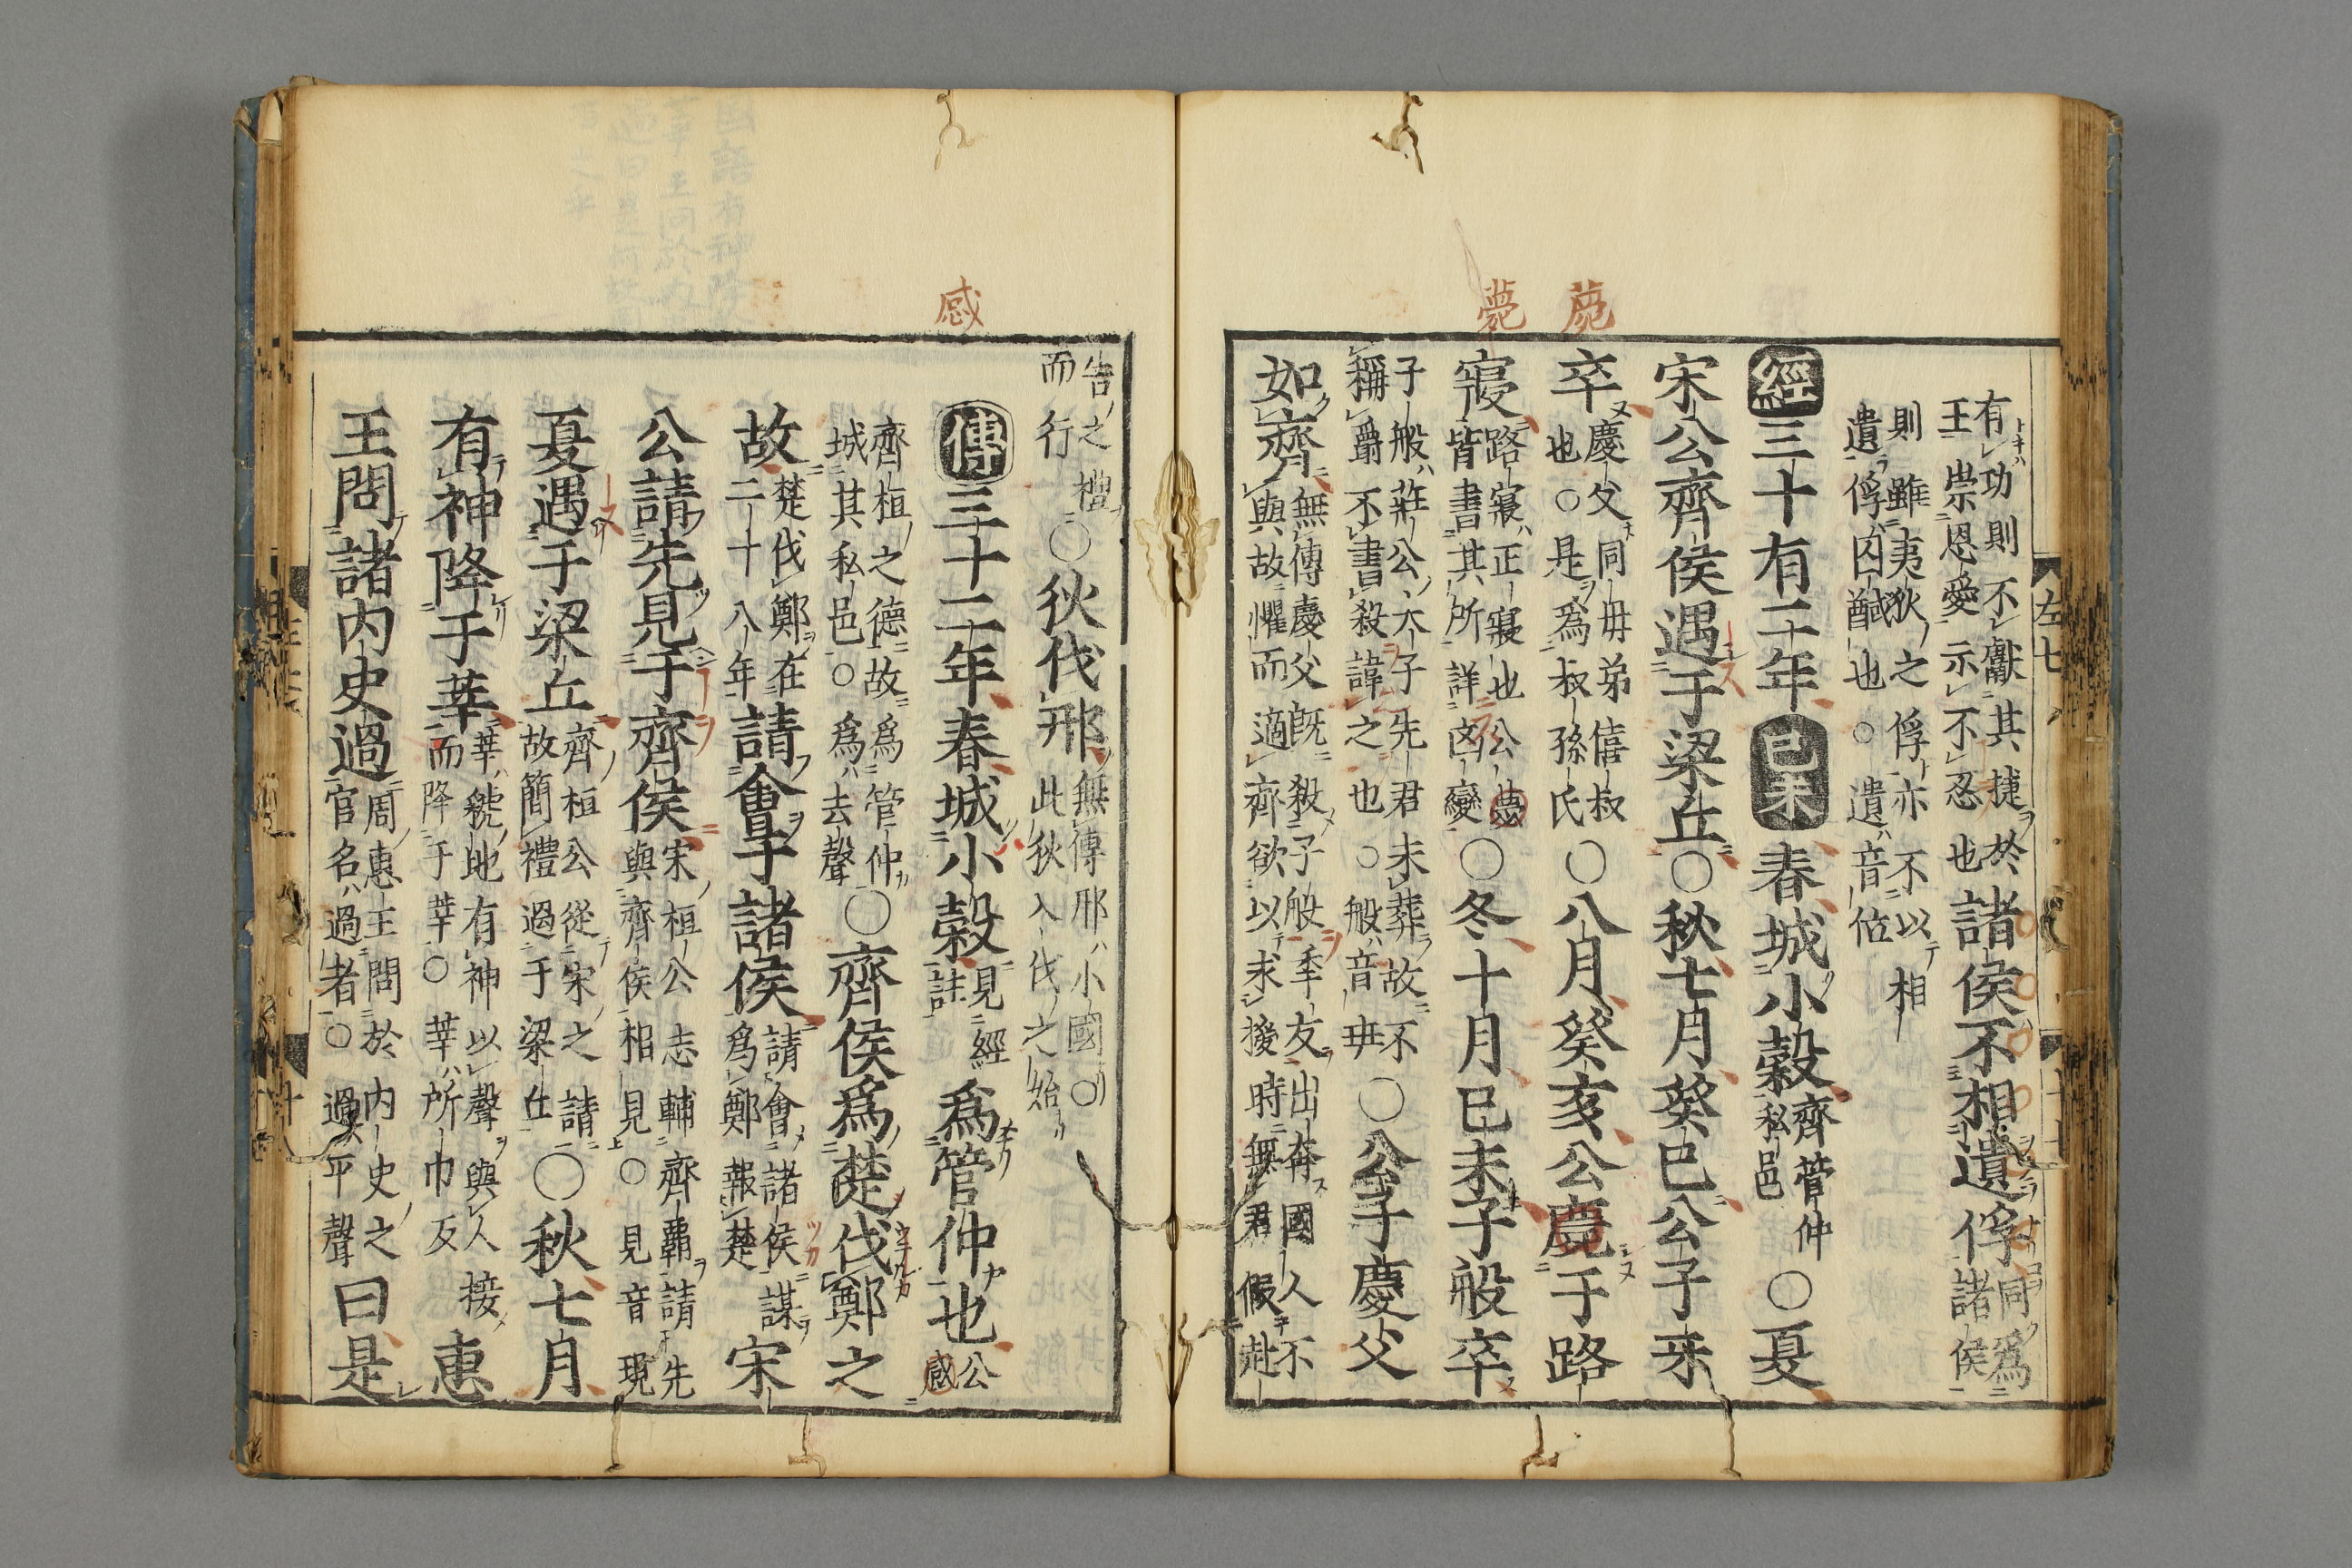 薨
薨
感
有功則不獻其捷於
王崇恩愛示不忍也
諸侯不相遺俘
同爲
諸侯
則雖夷狄之俘亦不以相
遺俘囚馘也○遺音位
經三十有二年己未春城小穀
齊管仲
私邑
○夏
宋公齊侯遇于梁丘○秋七月癸巳公子牙
卒
慶父同毋弟僖叔
也○是爲叔孫氏
○八月癸亥公薨于路
寢
路寢正寢也公薨
皆書其所詳凶變
○冬十月已未子般卒
子般莊公大子先君未葬故不
稱爵不書殺諱之也○般音班
○公子慶父
如齊
無傳慶父旣殺子般季友出奔國人不
與故懼而適齊欲以求援時無君假赴
告之禮
而行
○狄伐邢
無傳邢小國○
此狄入伐之始
傳三十二年春城小穀
見經
註
爲管仲也
公
感
齊桓之德故爲管仲
城其私邑○爲去聲
○齊侯爲楚伐鄭之
故
楚伐鄭在
二十八年
請會于諸侯
請會諸侯謀
爲鄭報楚
宋
公請先見于齊侯
宋桓公志輔齊霸請先
與齊侯相見○見音現
夏遇于梁丘
齊桓公從宋之請
故簡禮過于梁丘
○秋七月
有神降于莘
莘虢地有神以聲與人接
而降于莘○莘所巾反
惠
王問諸内史過
周惠王問於内史之
官名過者○過平聲
曰是
左七